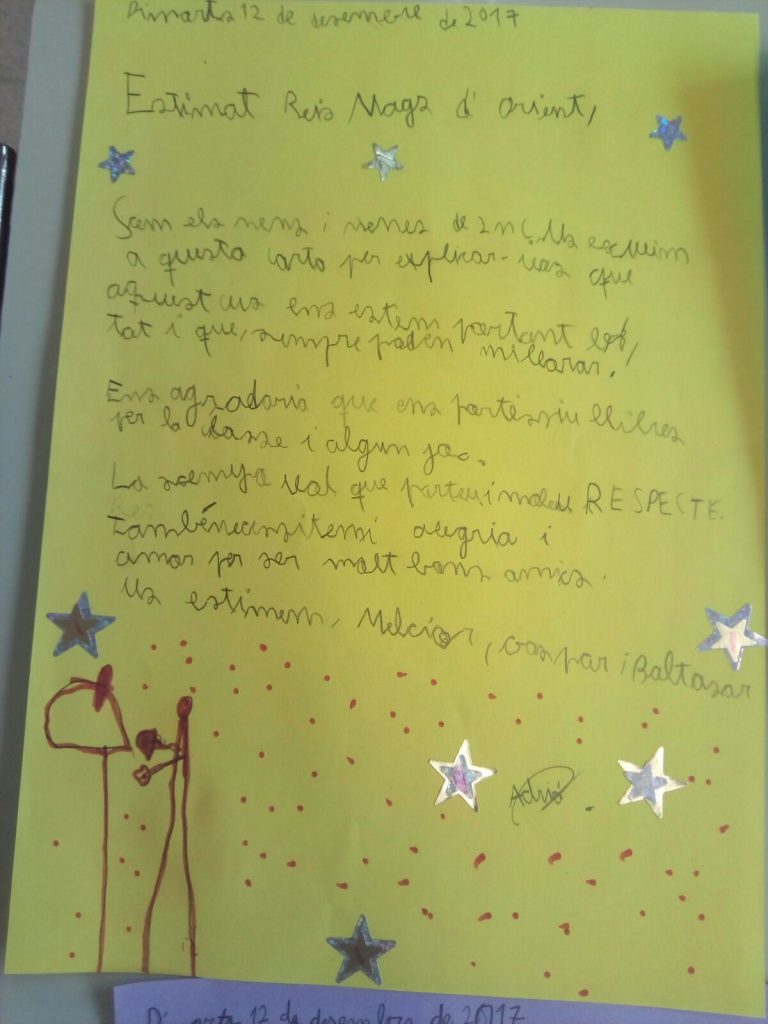 Dimarts 12 de desembre de 2017
Estimat Reis Mags d'orient,
Som els nens i nenes de 2n C. Us escriuim
a questa carta per explicar-vos que
aquest curs ens estem portant
tat i que, sempre poden millorar.
Ens agradaria que ens portéssiu llibres
per la classe i algun joc.
La senyo vol que porteu i RESPECTE.
també necessitem alegria i
amor per ser molt bons amics.
Us estimem, Melcior, Gaspar i Baltasar
Adrià
Dimarts 12 de desembre de 2017